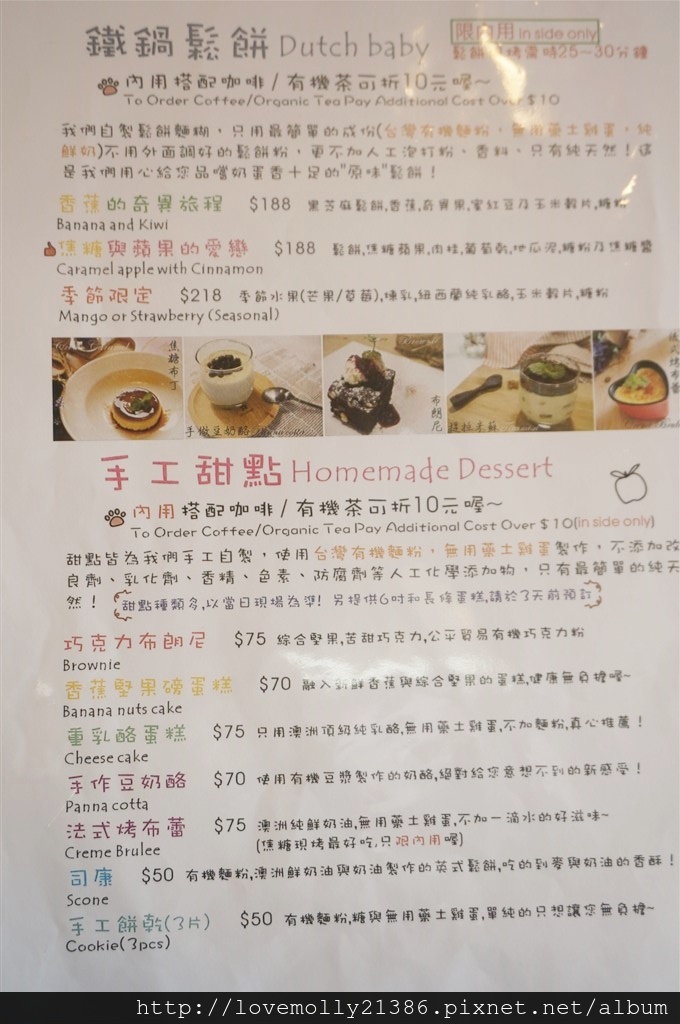 鐵鍋鬆餅 Dutch baby
限內用 in side only
鬆餅現烤需時25~30分鐘
內用搭配咖啡/有機茶可折10元喔~
To Order Coffee/Organic Tea Pay Additional Cost Over $10
我們自製鬆餅麵糊，只用最簡單的成份(台灣有機麵粉，無用藥土雞蛋，純
鮮奶)不用外面調好的鬆餅粉，更不加人工泡打粉、香料。只有純天然！這
是我們用心給您品嚐奶蛋香十足的"原味"鬆餅！
香蕉的奇異旅程 $188 黑芝麻鬆餅,香蕉,奇異果,蜜紅豆及玉米穀片,糖粉
Banana and Kiwi
焦糖與蘋果的愛戀 $188 鬆餅,焦糖蘋果,肉桂,葡萄乾,地瓜泥,糖粉及焦糖醬
Caramel apple with Cinnamon
季節限定 $218 季節水果(芒果/草莓),煉乳,紐西蘭純乳酪,玉米穀片,糖粉
Mango or Strawberry (Seasonal)
焦糖布丁
手做豆奶酪
布朗尼
提拉米蘇
手工甜點 Homemade Dessert
內用搭配咖啡/有機茶可折10元喔~
To Order Coffee/Organic Tea Pay Additional Cost Over $10(in side only)
甜點皆為我們手工自製，使用台灣有機麵粉，無用藥土雞蛋製作，不添加改
良劑、乳化劑、香精、色素、防腐劑等人工化學添加物，只有最簡單的純天
然！ 甜點種類多,以當日現場為準! 另提供6吋和長條蛋糕,請於3天前預訂
巧克力布朗尼 $75 綜合堅果,苦甜巧克力,公平貿易有機巧克力粉
Brownie
香蕉堅果磅蛋糕 $70 融入新鮮香蕉與綜合堅果的蛋糕,健康無負擔喔~
Banana nuts cake
重乳酪蛋糕 $75 只用澳洲頂級純乳酪,無用藥土雞蛋,不加麵粉,真心推薦！
Cheese cake
手作豆奶酪 $70 使用有機豆漿製作的奶酪,絕對給您意想不到的新感受！
Panna cotta
法式烤布蕾 $75 澳洲純鮮奶油,無用藥土雞蛋,不加一滴水的好滋味~
(焦糖現烤最好吃,只限內用喔)
Creme Brulee
司康 $50 有機麵粉,澳洲鮮奶油與奶油製作的英式鬆餅,吃的到麥與奶油的香酥！
Scone
手工餅乾(3片) $50 有機麵粉,糖與無用藥土雞蛋,單純的只想讓您無負擔~
Cookie(3pcs)
http://lovemolly21386.pixnet.net/album